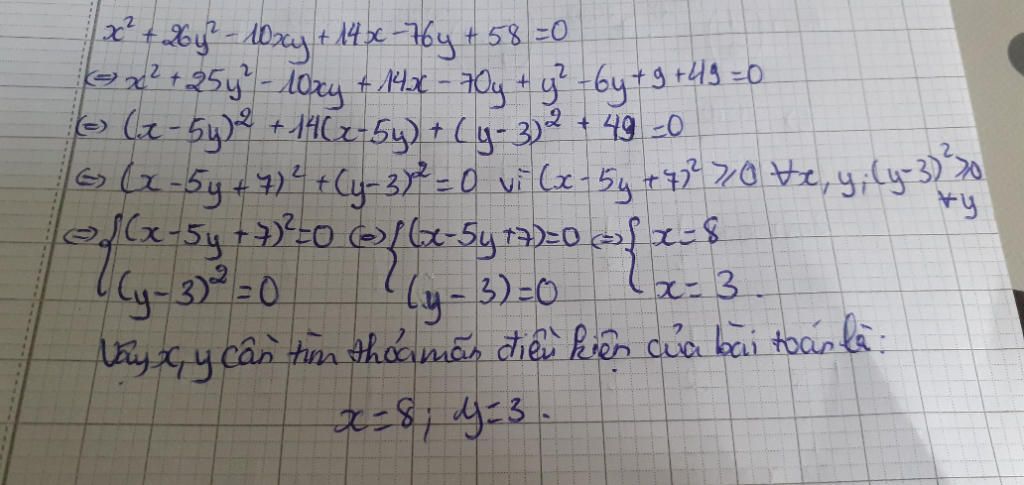 x² + 26y² - 10xy + 14x - 76y + 58 = 0
⇔ x² + 25y² - 10xy + 14x - 70y + y² - 6y + 9 + 49 = 0
⇔ (x - 5y)² + 14(x - 5y) + (y - 3)² + 49 = 0
⇔ (x - 5y + 7)² + (y - 3)² = 0 vì (x - 5y + 7)² ⩾ 0 ∀x, y; (y - 3)² ⩾ 0
∀y
⇔ { (x - 5y + 7)² = 0 ⇔ { (x - 5y + 7) = 0 ⇔ { x = 8
(y - 3)² = 0 (y - 3) = 0 x = 3.
Vậy x, y cần tìm thỏa mãn điều kiện của bài toán là:
x = 8; y = 3.